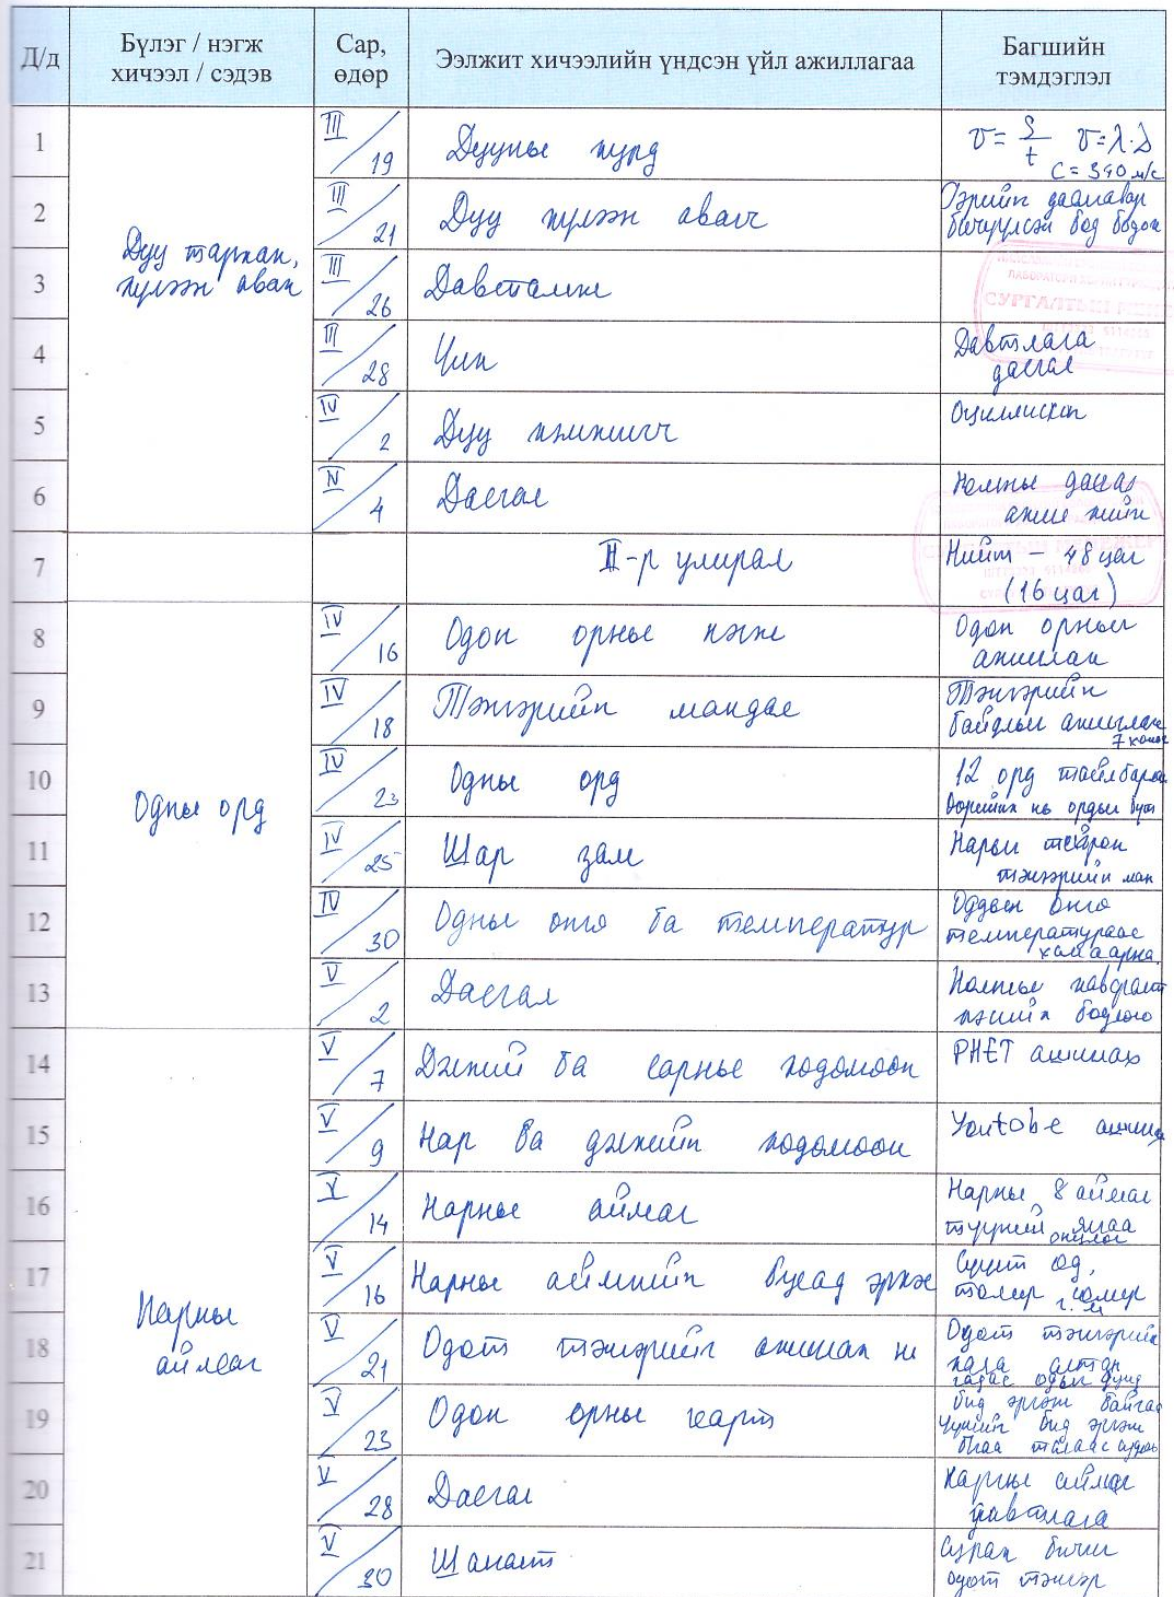 Д/д
Бүлэг / нэгж
хичээл / сэдэв
Сар,
өдөр
Ээлжит хичээлийн үндсэн үйл ажиллагаа
Багшийн
тэмдэглэл
1
III/19
Дууны хурд
v=S/t v=λ·ν
C=340 м/с
2
III/21
Дуу хүлээн авагч
Гэрийн даалгавар
бичүүлсэн бод бодох
Дуу тархах,
хүлээн авах
3
III/26
Давталт
СУРГАЛТЫН
4
III/28
Чих
Давтлага
дасгал
5
IV/2
Дуу хэмжигч
Оциллископ
6
IV/4
Дасгал
Номны дасгал
ажил хийх
7
III-р улирал
Нийт - 48 цаг
(16 цаг)
8
IV/16
Одон орны нэгж
Одон орныг
ажиглах
9
IV/18
Тэнгэрийн мандал
Тэнгэрийн
байдлыг ажиглах
7 хоног
Одны орд
10
IV/23
Одны орд
12 орд тайлбарла
Өөрийнх нь ордыг
11
IV/25
Шар зам
Нарыг тойрон
тэнгэрийн
12
IV/30
Одны өнгө ба температур
Оддын өнгө
температураас
хамаарна
13
V/2
Дасгал
Номны
бодлого
14
V/7
Дэлхий ба сарны хөдөлгөөн
PHET ашиглах
15
V/9
Нар ба дэлхийн хөдөлгөөн
Youtobe ашигла
16
V/14
Нарны аймаг
Нарны 8 аймаг
түүний ялгаа
онцлог
17
V/16
Нарны аймгийн бусад эрхэс
Сүүлт од,
солир
г.м
Нарны
аймаг
18
V/21
Одот тэнгэрийг ажиглах нь
Одот тэнгэрийн
алтан
гадас одыг дунд
19
V/23
Одон орны карт
бид эргэж байгаа
бид эргэж
20
V/28
Дасгал
Нарны аймаг
давтлага
21
V/30
Шалгалт
Сурах бичиг
одот тэнгэр